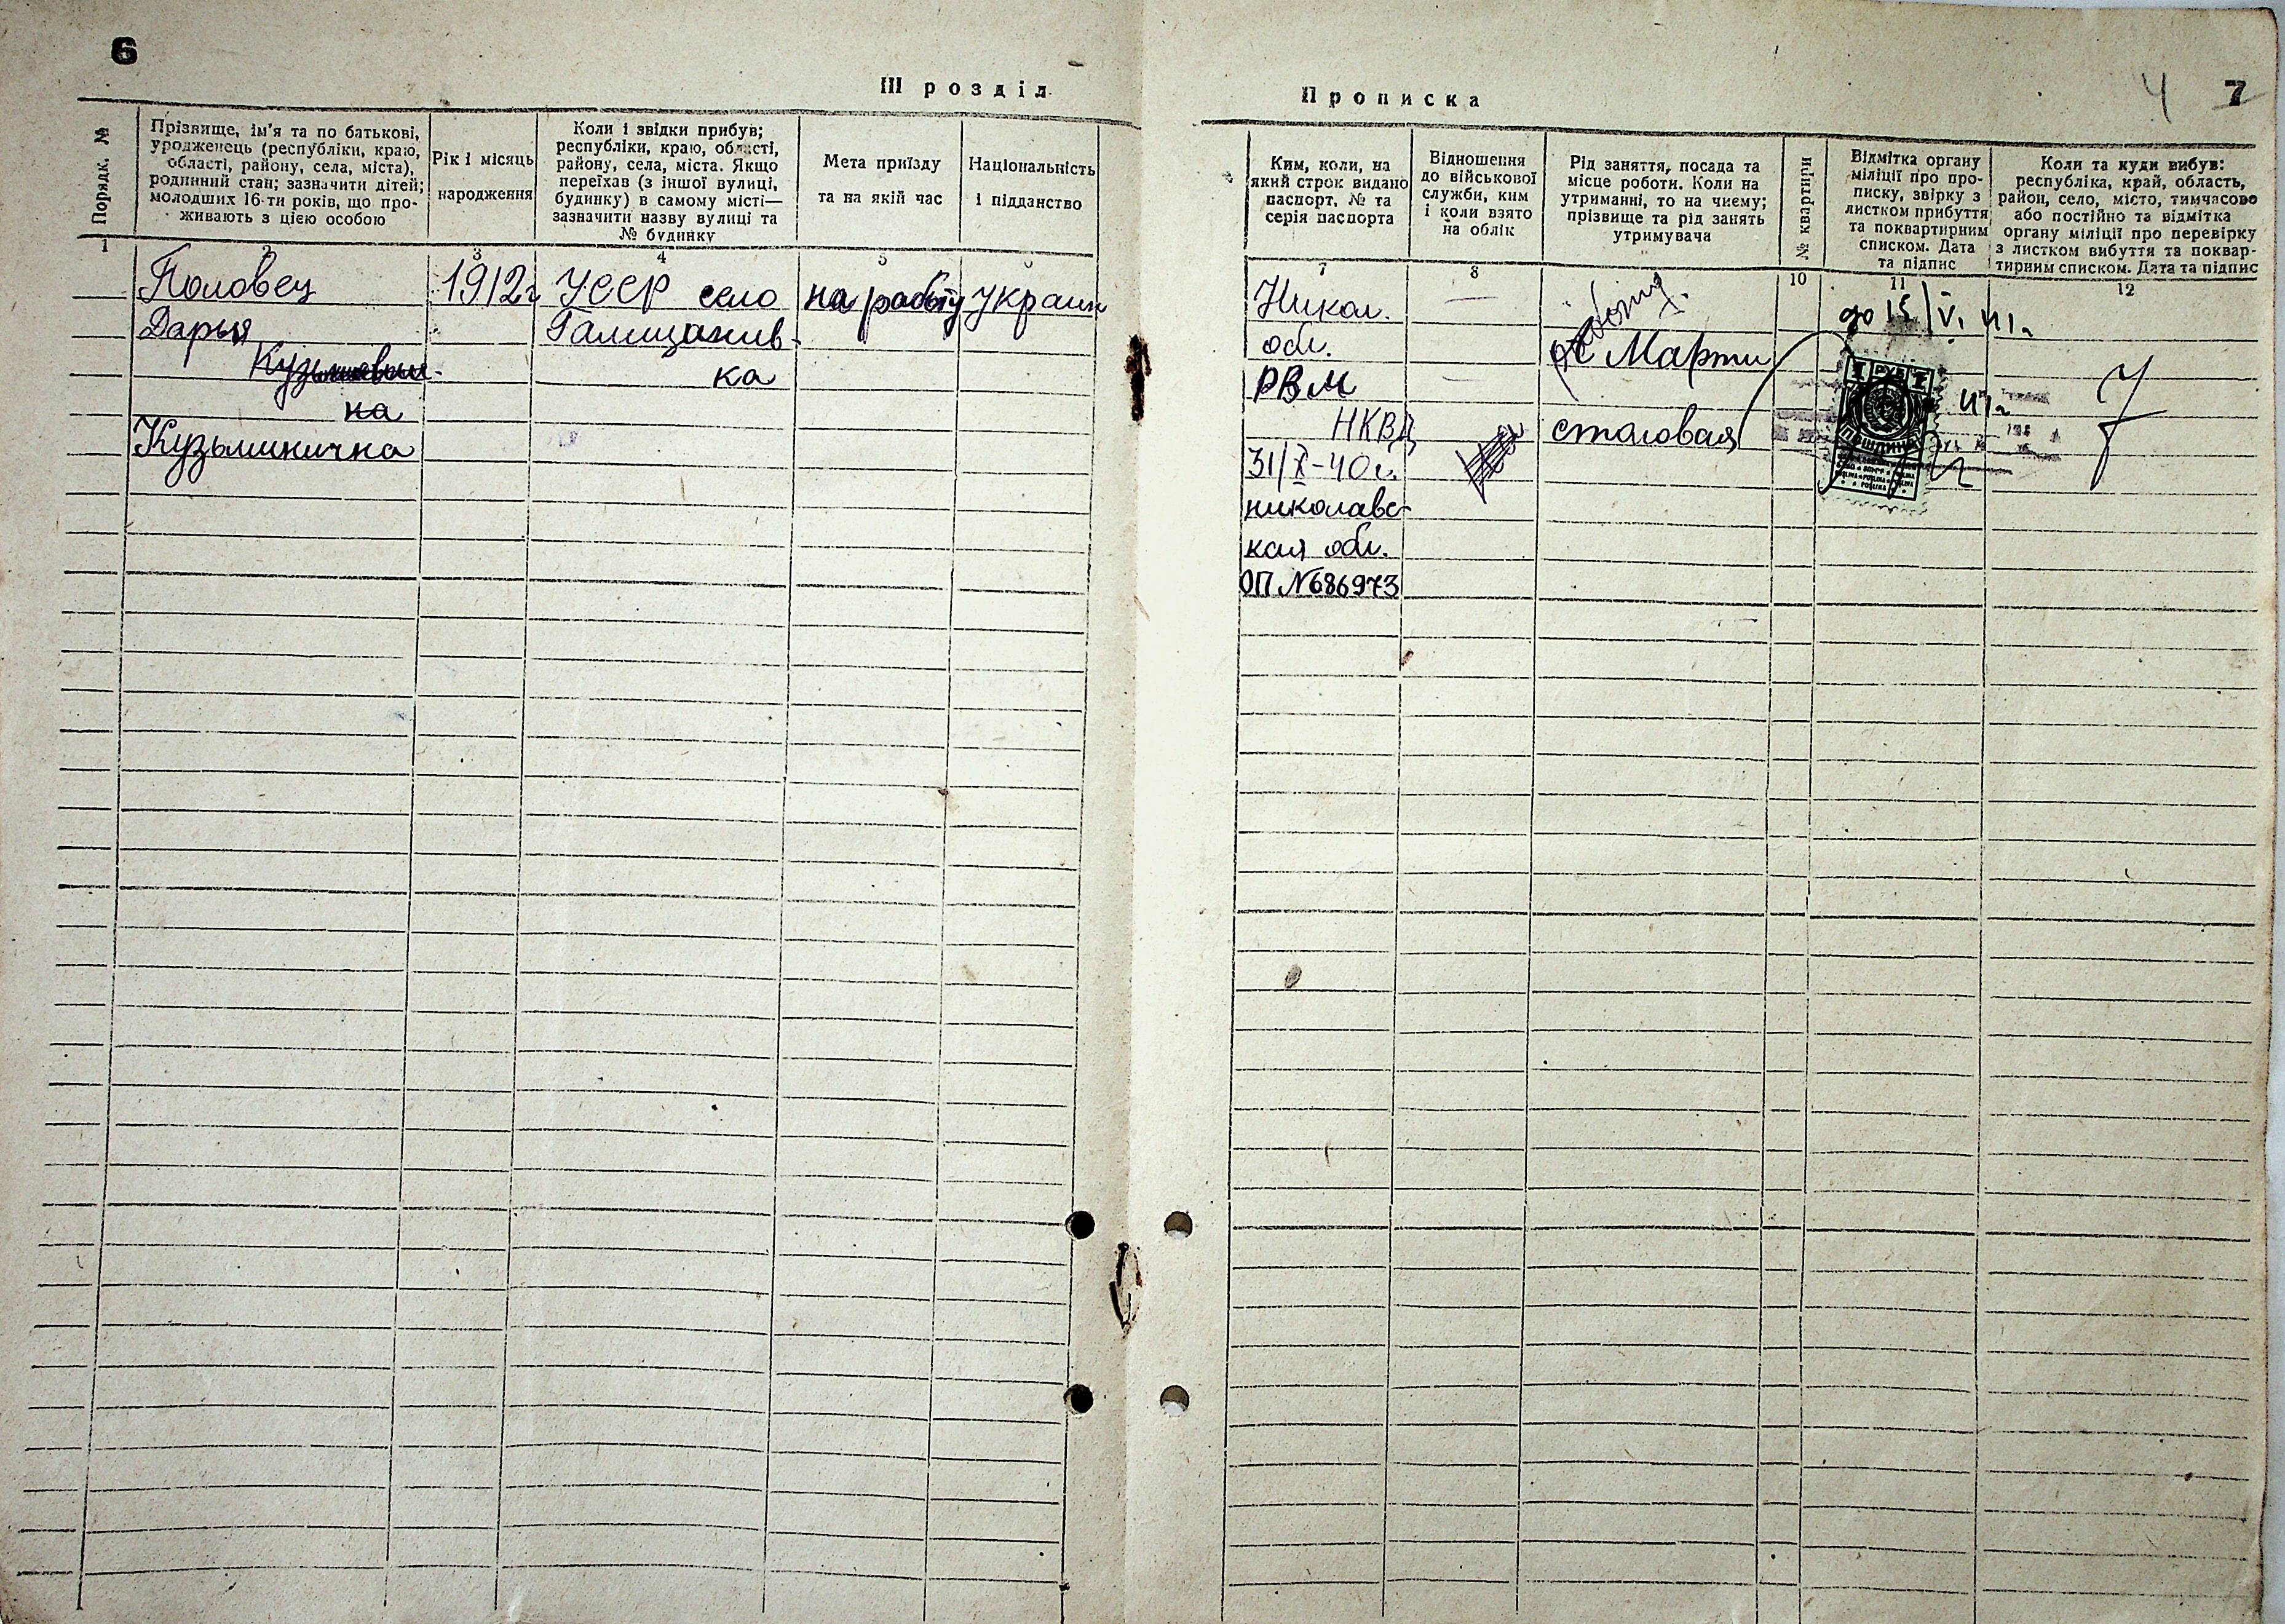 6
III розділ
Порядк. №
Прізвище, ім'я та по батькові,
уродженець (республіки, краю,
області, району, села, міста),
родинний стан; зазначити дітей;
молодших 16-ти років, що про-
живають з цією особою
Рік і місяць
народження
Коли і звідки прибув;
республіки, краю, області,
району, села, міста. Якщо
переїхав (з іншої вулиці,
будинку) в самому місті—
зазначити назву вулиці та
№ будинку
Мета приїзду
та на якій час
Національність
і підданство
1
2
3
4
5
6
Половец
Дарья
Кузьминична
1912г
УССР село
Галицанив-
ка
на работу
украин
Прописка
4
7
Ким, коли, на
який строк видано
паспорт, № та
серія паспорта
Відношення
до військової
служби, ким
і коли взято
на облік
Рід заняття, посада та
місце роботи. Коли на
утриманні, то на чиєму;
прізвище та рід занять
утримувача
№ квартири
Відмітка органу
міліції про про-
писку, звірку з
листком прибуття
та поквартирним
списком. Дата
та підпис
Коли та куди вибув:
республіка, край, область,
район, село, місто, тимчасово
або постійно та відмітка
органу міліції про перевірку
з листком вибуття та поквар-
тирним списком. Дата та підпис
7
8
10
11
12
Никол.
обл.
РВМ
НКВД
31/X-40г.
николаевс-
кая обл.
ОП №686973
Марти
столовая
до 15/VI 41г.
1 РУБ 1
ПОШЛИНА
41г